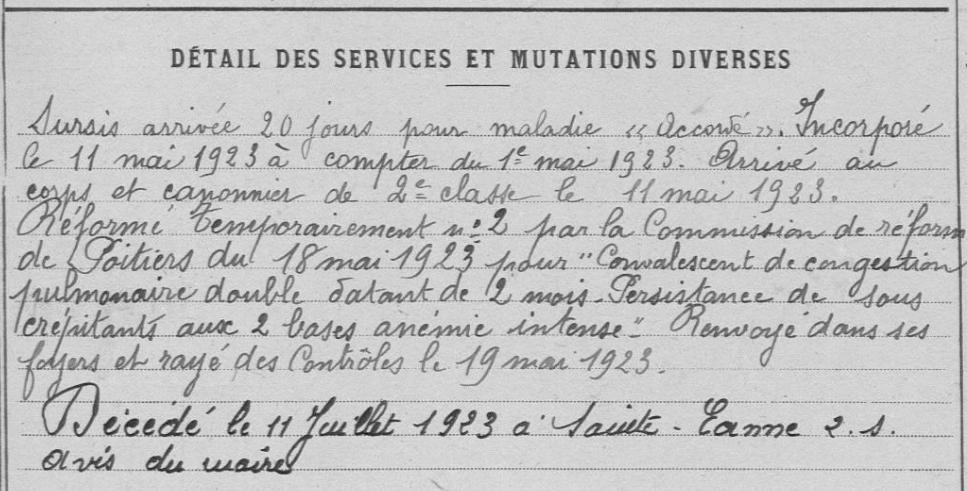 DÉTAIL DES SERVICES ET MUTATIONS DIVERSES
Sursis arrivée 20 jours pour maladie « Accordé ». Incorporé
le 11 mai 1923 à compter du 1er mai 1923. Arrivé au
corps et canonnier de 2e classe le 11 mai 1923.
Réformé temporairement n° 2 par la Commission de réform
de Poitiers du 18 mai 1923 pour "Convalescent de congestion
pulmonaire double datant de 2 mois - Persistance de sous
crépitants aux 2 bases anémie intense" Renvoyé dans ses
foyers et rayé des Contrôles le 19 mai 1923.
Décédé le 11 Juillet 1923 à Sainte-Eanne 2.s.
avis du maire